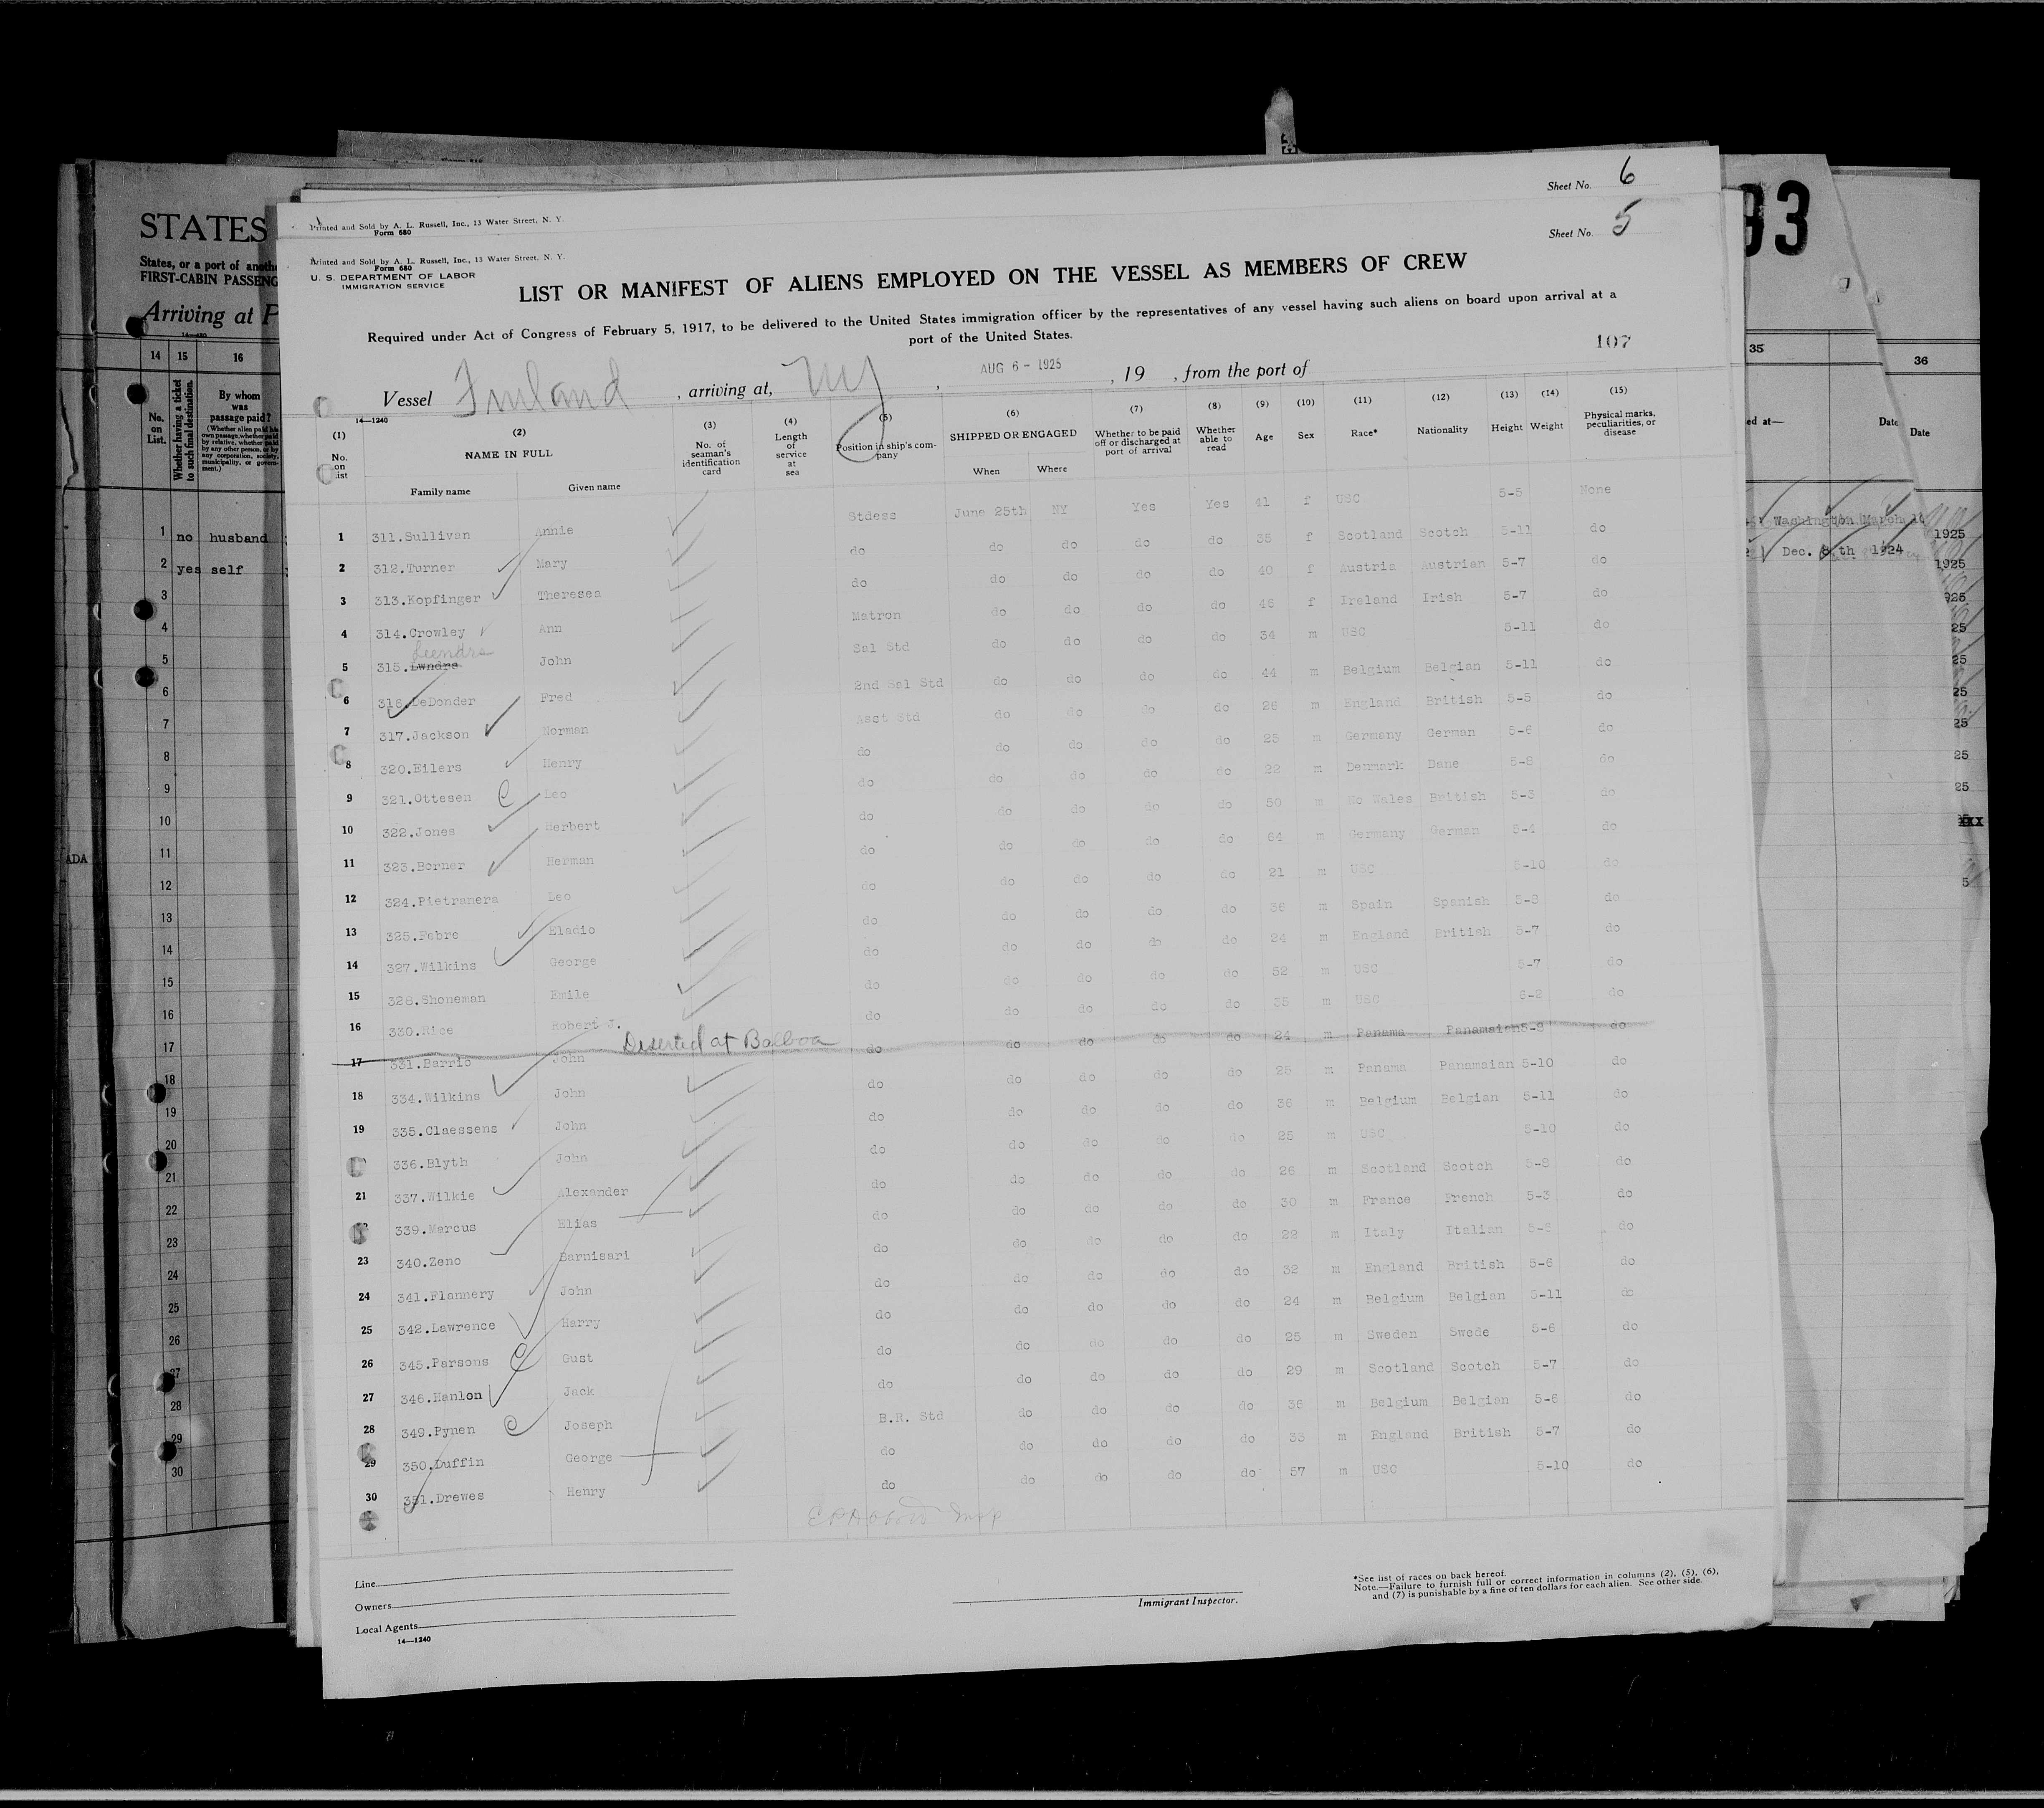 Sheet No. 6
Printed and Sold by A. L. Russell, Inc., 13 Water Street, N. Y.
Form 680
Sheet No. 5
Printed and Sold by A. L. Russell, Inc., 13 Water Street, N. Y.
Form 680
U. S. DEPARTMENT OF LABOR
IMMIGRATION SERVICE
LIST OR MANIFEST OF ALIENS EMPLOYED ON THE VESSEL AS MEMBERS OF CREW
Required under Act of Congress of February 5, 1917, to be delivered to the United States immigration officer by the representatives of any vessel having such aliens on board upon arrival at a
port of the United States.
107
Vessel Finland , arriving at, NY , AUG 6 - 1925 , 19 , from the port of
14—1240
(1) (2) (3) (4) (5) (6) (7) (8) (9) (10) (11) (12) (13) (14) (15)
No. on list
NAME IN FULL
Family name Given name
No. of seaman's identification card
Length of service at sea
Position in ship's company
SHIPPED OR ENGAGED
When Where
Whether to be paid off or discharged at port of arrival
Whether able to read
Age Sex Race* Nationality Height Weight
Physical marks, peculiarities, or disease
1 311.Sullivan Annie Stdess June 25th NY Yes Yes 41 f USC 5-5 None
2 312.Turner Mary do do do do do 35 f Scotland Scotch 5-11 do
3 313.Kopfinger Theresea do do do do do 40 f Austria Austrian 5-7 do
4 314.Crowley Ann Matron do do do do 46 f Ireland Irish 5-7 do
Leendre
5 315.Lwndre John Sal Std do do do do 34 m USC 5-11 do
6 316.DeDonder Fred 2nd Sal Std do do do do 44 m Belgium Belgian 5-11 do
7 317.Jackson Norman Asst Std do do do do 26 m England British 5-5 do
8 320.Eilers Henry do do do do do 25 m Germany German 5-6 do
9 321.Ottesen C Leo do do do do do 22 m Denmark Dane 5-8 do
10 322.Jones Herbert do do do do do 50 m No Wales British 5-3 do
11 323.Borner Herman do do do do do 64 m Germany German 5-4 do
12 324.Pietranera Leo do do do do do 21 m USC 5-10 do
13 325.Febre Eladio do do do do do 36 m Spain Spanish 5-8 do
14 327.Wilkins George do do do do do 24 m England British 5-7 do
15 328.Shoneman Emile do do do do do 52 m USC 5-7 do
16 330.Rice Robert J. do do do do do 35 m USC 6-2 do
17 331.Barrio John Deserted at Balboa do do do do do 24 m Panama Panamaian 5-8 do
18 334.Wilkins John do do do do do 25 m Panama Panamaian 5-10 do
19 335.Claessens John do do do do do 36 m Belgium Belgian 5-11 do
336.Blyth John do do do do do 25 m USC 5-10 do
21 337.Wilkie Alexander do do do do do 26 m Scotland Scotch 5-8 do
339.Marcus Elias do do do do do 30 m France French 5-3 do
23 340.Zeno Barnisari do do do do do 22 m Italy Italian 5-8 do
24 341.Flannery John do do do do do 32 m England British 5-6 do
25 342.Lawrence Harry do do do do do 24 m Belgium Belgian 5-11 do
26 345.Parsons C Gust do do do do do 25 m Sweden Swede 5-6 do
27 346.Hanlon Jack do do do do do 29 m Scotland Scotch 5-7 do
28 349.Pynen C Joseph B.R. Std do do do do 36 m Belgium Belgian 5-6 do
29 350.Duffin George do do do do do 35 m England British 5-7 do
30 351.Drewes Henry do do do do do 57 m USC 5-10 do
Line
Owners
Local Agents
14—1240
Immigrant Inspector.
*See list of races on back hereof.
Note.—Failure to furnish full or correct information in columns (2), (5), (6),
and (7) is punishable by a fine of ten dollars for each alien. See other side.
STATES
States, or a port of
FIRST-CABIN
Arriving at
14 15 16
No. on List.
Whether having a ticket to such final destination.
By whom was passage paid?
1 no husband
2 yes self
3
4
5
6
7
8
9
10
11
12
13
14
15
16
17
18
19
20
21
22
23
24
25
26
27
28
29
30
ADA
93
35 36
ed at— Date
Date
Washington March
1925
Dec. 8th 1924
1925